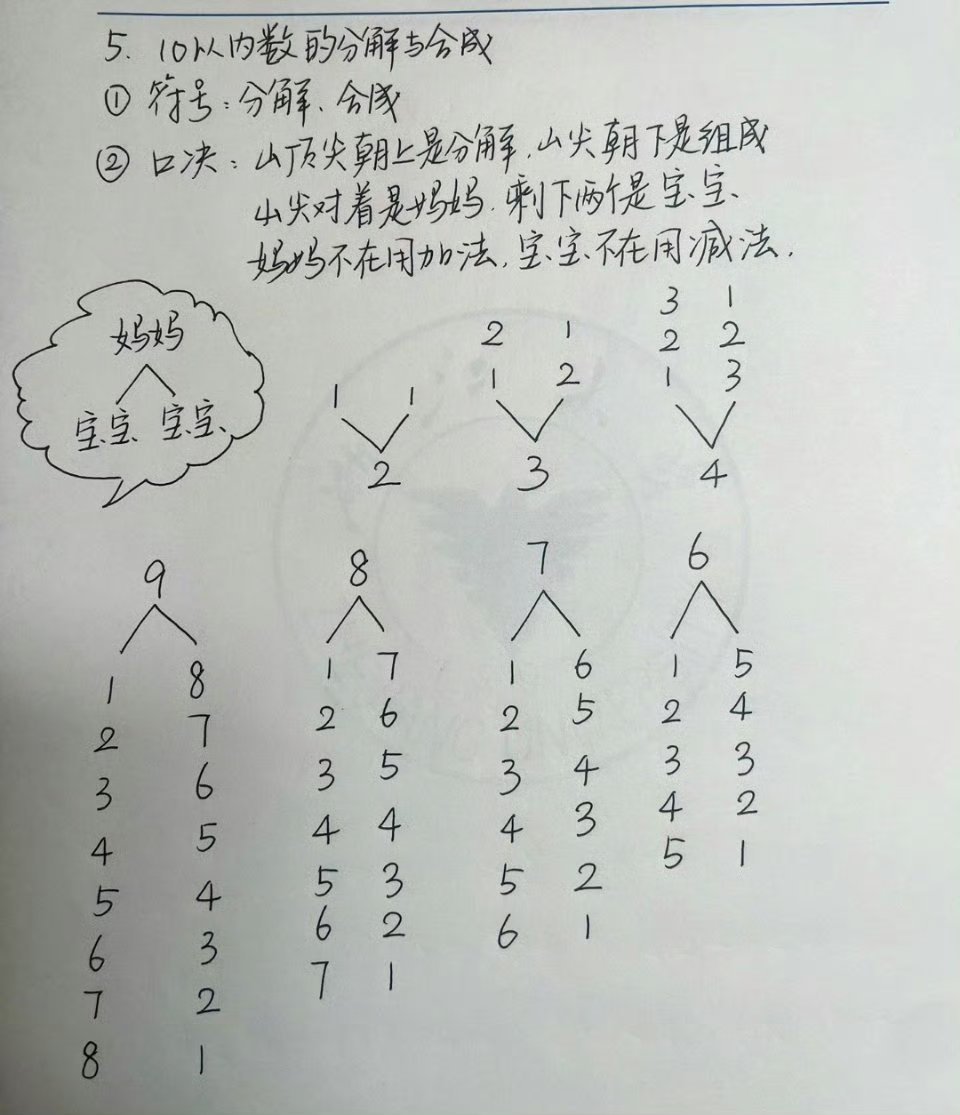 5. 10以内数的分解与合成
① 符号：分解、合成
② 口决：山顶尖朝上是分解，山尖朝下是组成
山尖对着是妈妈，剩下两个是宝宝、
妈妈不在用加法，宝宝不在用减法.
妈妈
宝宝 宝宝
3 1
2 1 2 2
1 1 1 2 1 3
2 3 4
9 8 7 6
1 8 1 7 1 6 1 5
2 7 2 6 2 5 2 4
3 6 3 5 3 4 3 3
4 5 4 4 4 3 4 2
5 4 5 3 5 2 5 1
6 3 6 2 6 1
7 2 7 1
8 1